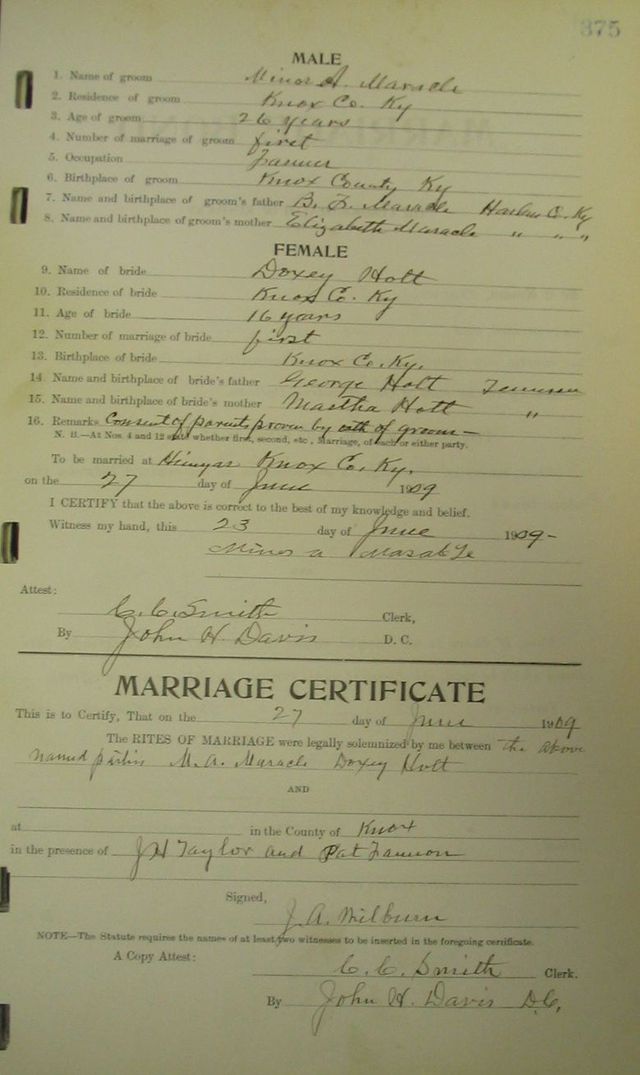 375
MALE
1. Name of groom Minor A. Maracle
2. Residence of groom Knox Co. Ky
3. Age of groom 26 years
4. Number of marriage of groom first
5. Occupation Farmer
6. Birthplace of groom Knox County Ky
7. Name and birthplace of groom's father B. F. Maracle Harlan Co. Ky
8. Name and birthplace of groom's mother Elizabeth Maracle " " "
FEMALE
9. Name of bride Doxey Holt
10. Residence of bride Knox Co. Ky
11. Age of bride 16 years
12. Number of marriage of bride first
13. Birthplace of bride Knox Co. Ky.
14. Name and birthplace of bride's father George Holt
15. Name and birthplace of bride's mother Martha Holt "
16. Remarks Consent of parents proven by oath of groom—
N. B.—At Nos. 4 and 12 state whether first, second, etc., Marriage, of each or either party.
To be married at Himyar Knox Co. Ky.
on the 27 day of June 1909
I CERTIFY that the above is correct to the best of my knowledge and belief.
Witness my hand, this 23 day of June 1909-
Minor a
Attest:
C. C. Smith Clerk,
By John H Davis D. C.
MARRIAGE CERTIFICATE
This is to Certify, That on the 27 day of June 1909
The RITES OF MARRIAGE were legally solemnized by me between the above
named M. A. Maracle Doxey Holt
AND
at in the County of Knox
in the presence of J H Taylor and Pat Fannon
Signed,
J. A. Milburn
NOTE—The Statute requires the names of at least two witnesses to be inserted in the foregoing certificate.
A Copy Attest:
C. C. Smith Clerk.
By John H. Davis D.C.